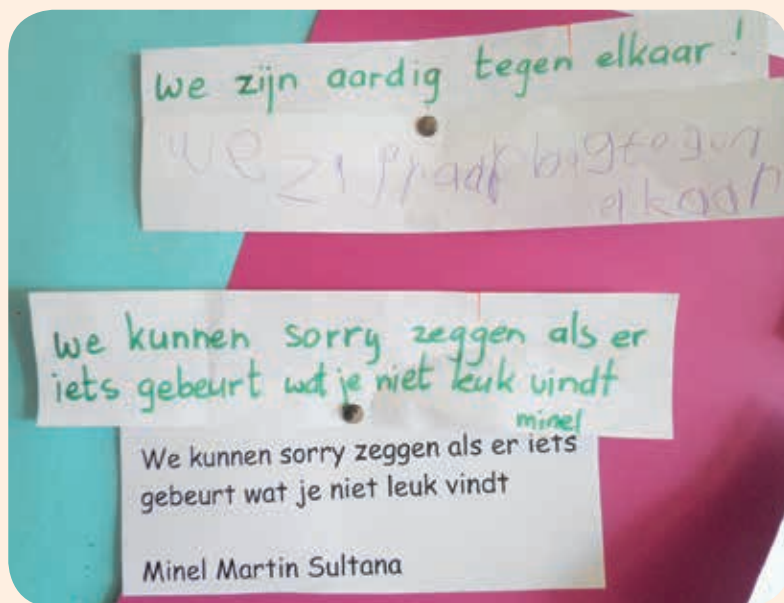 we zijn aardig tegen elkaar!
we zijn aardig tegen
elkaar
we kunnen sorry zeggen als er
iets gebeurt wat je niet leuk vindt
minel
We kunnen sorry zeggen als er iets
gebeurt wat je niet leuk vindt
Minel Martin Sultana